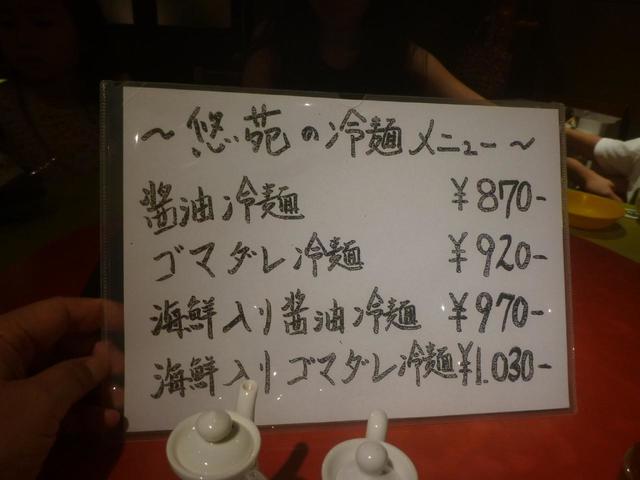 ～悠苑の冷麺メニュー～
醤油冷麺 ¥870-
ゴマダレ冷麺 ¥920-
海鮮入り醤油冷麺 ¥970-
海鮮入りゴマダレ冷麺 ¥1.030-